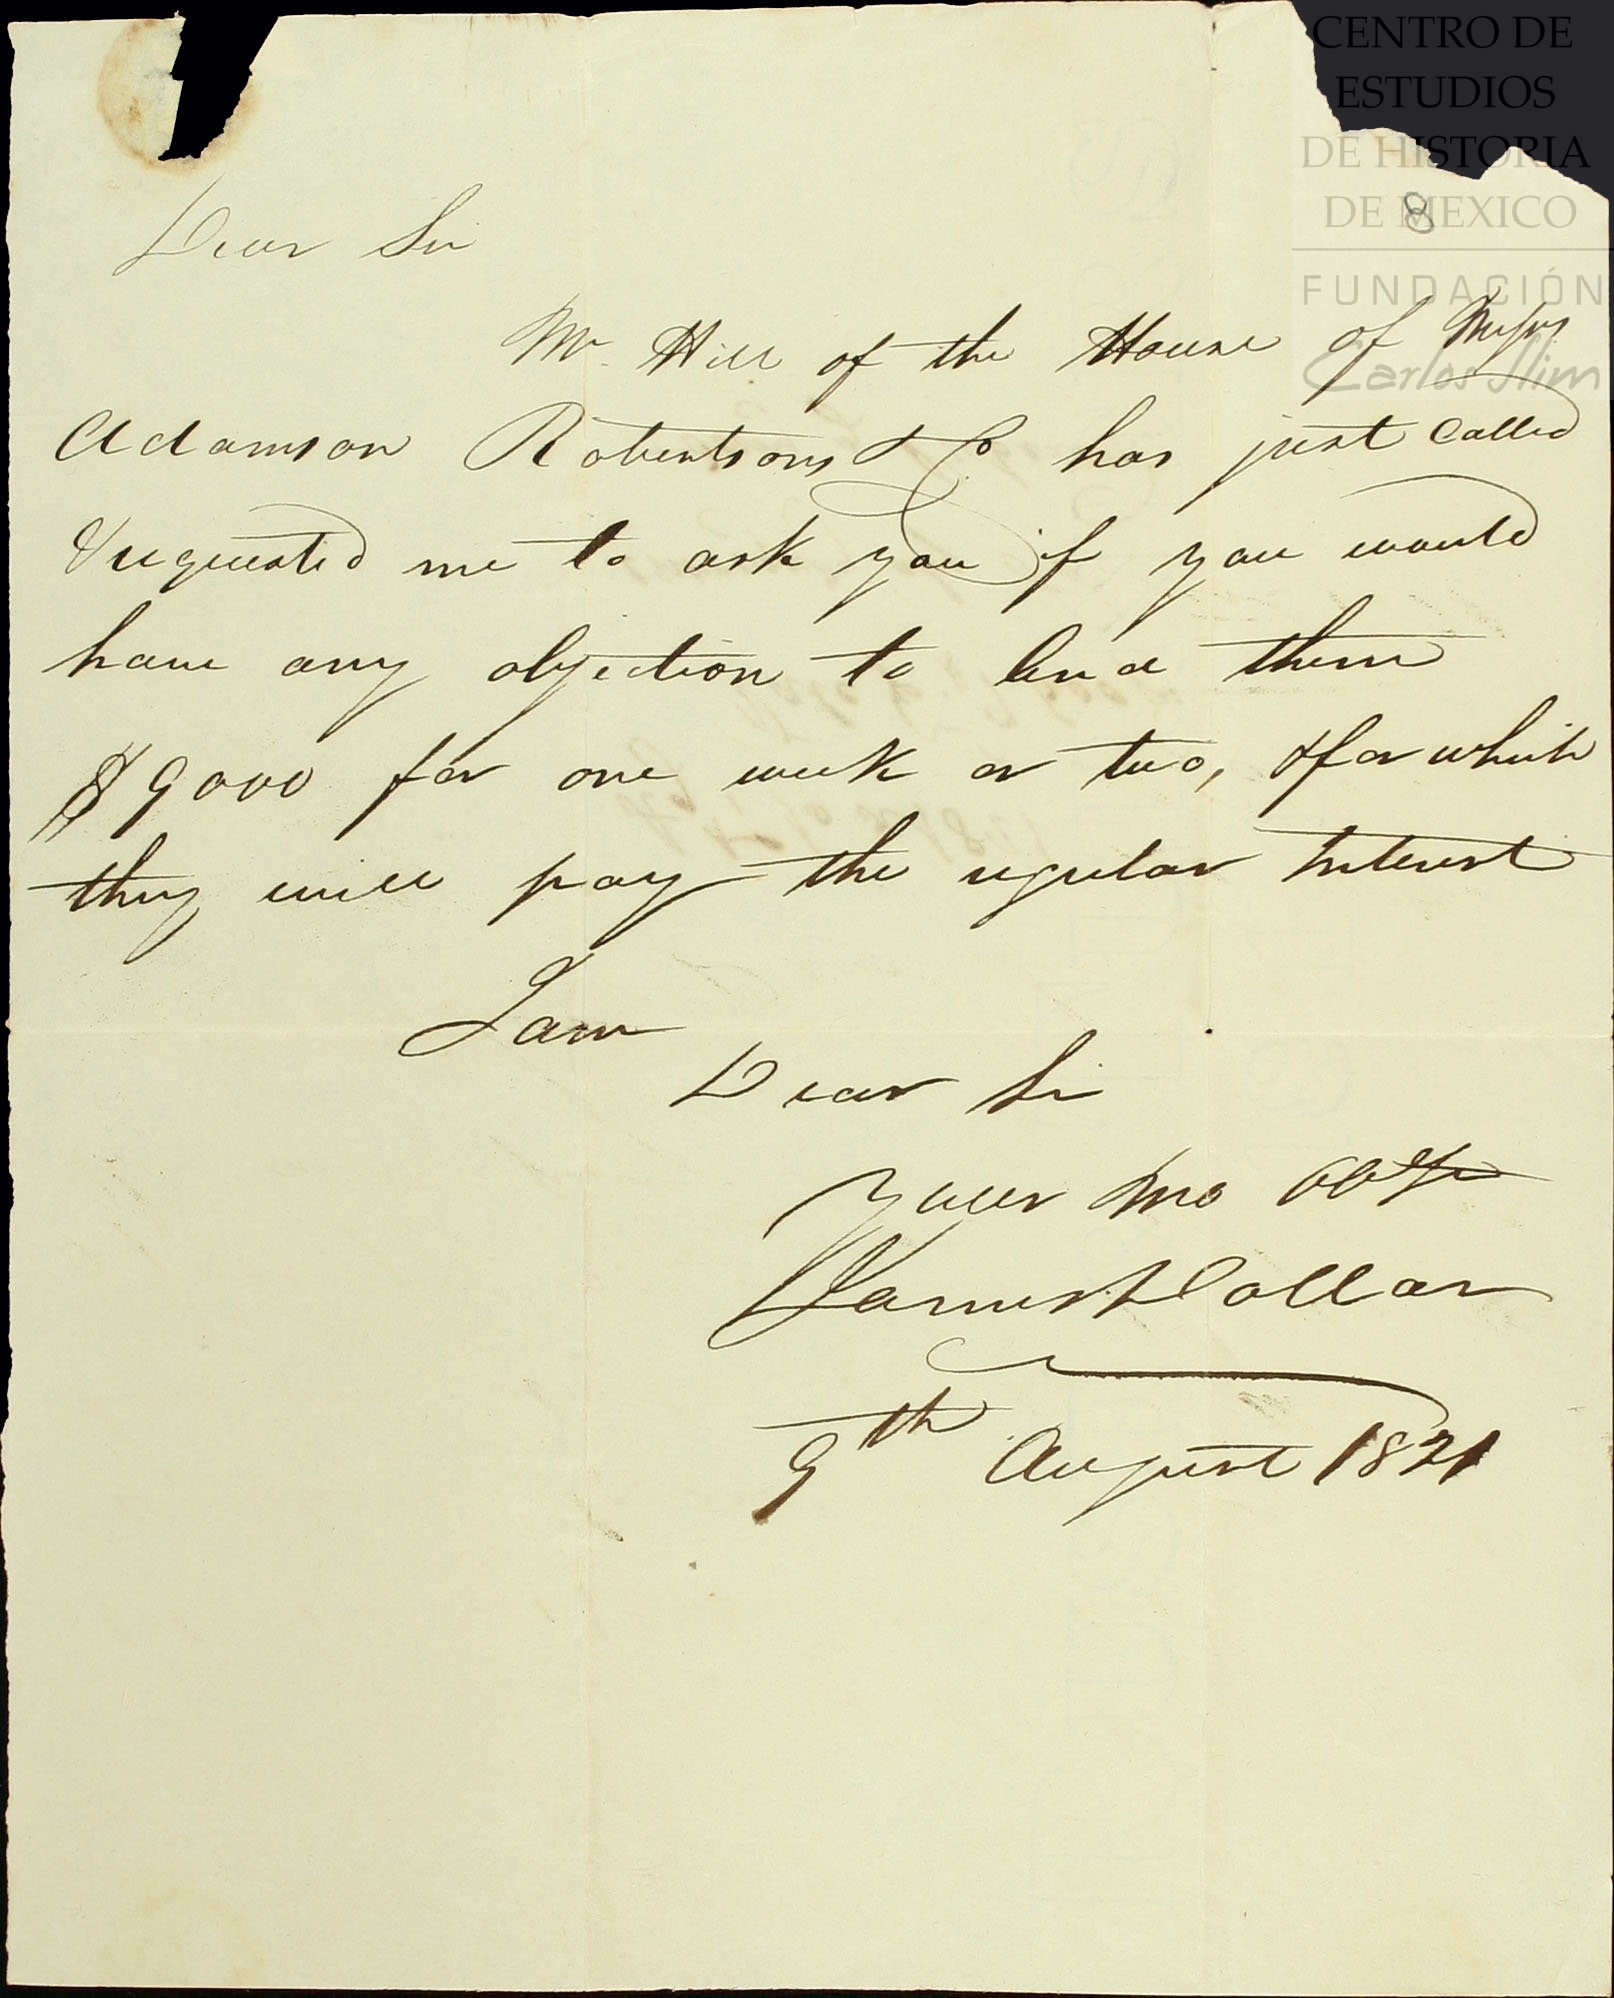 CENTRO DE
ESTUDIOS
DE HISTORIA
DE MEXICO
8
FUNDACIÓN
Carlos Slim
Dear Sir
Mr. Hill of the House of Messrs
Adamson Robertsons & Co has just called
& requested me to ask you if you would
have any objection to lend them
$9000 for one week or two, & for which
they will pay the regular Interest
I am
Dear Sir
Your Mo Obt
James Dollar
9th August 1821